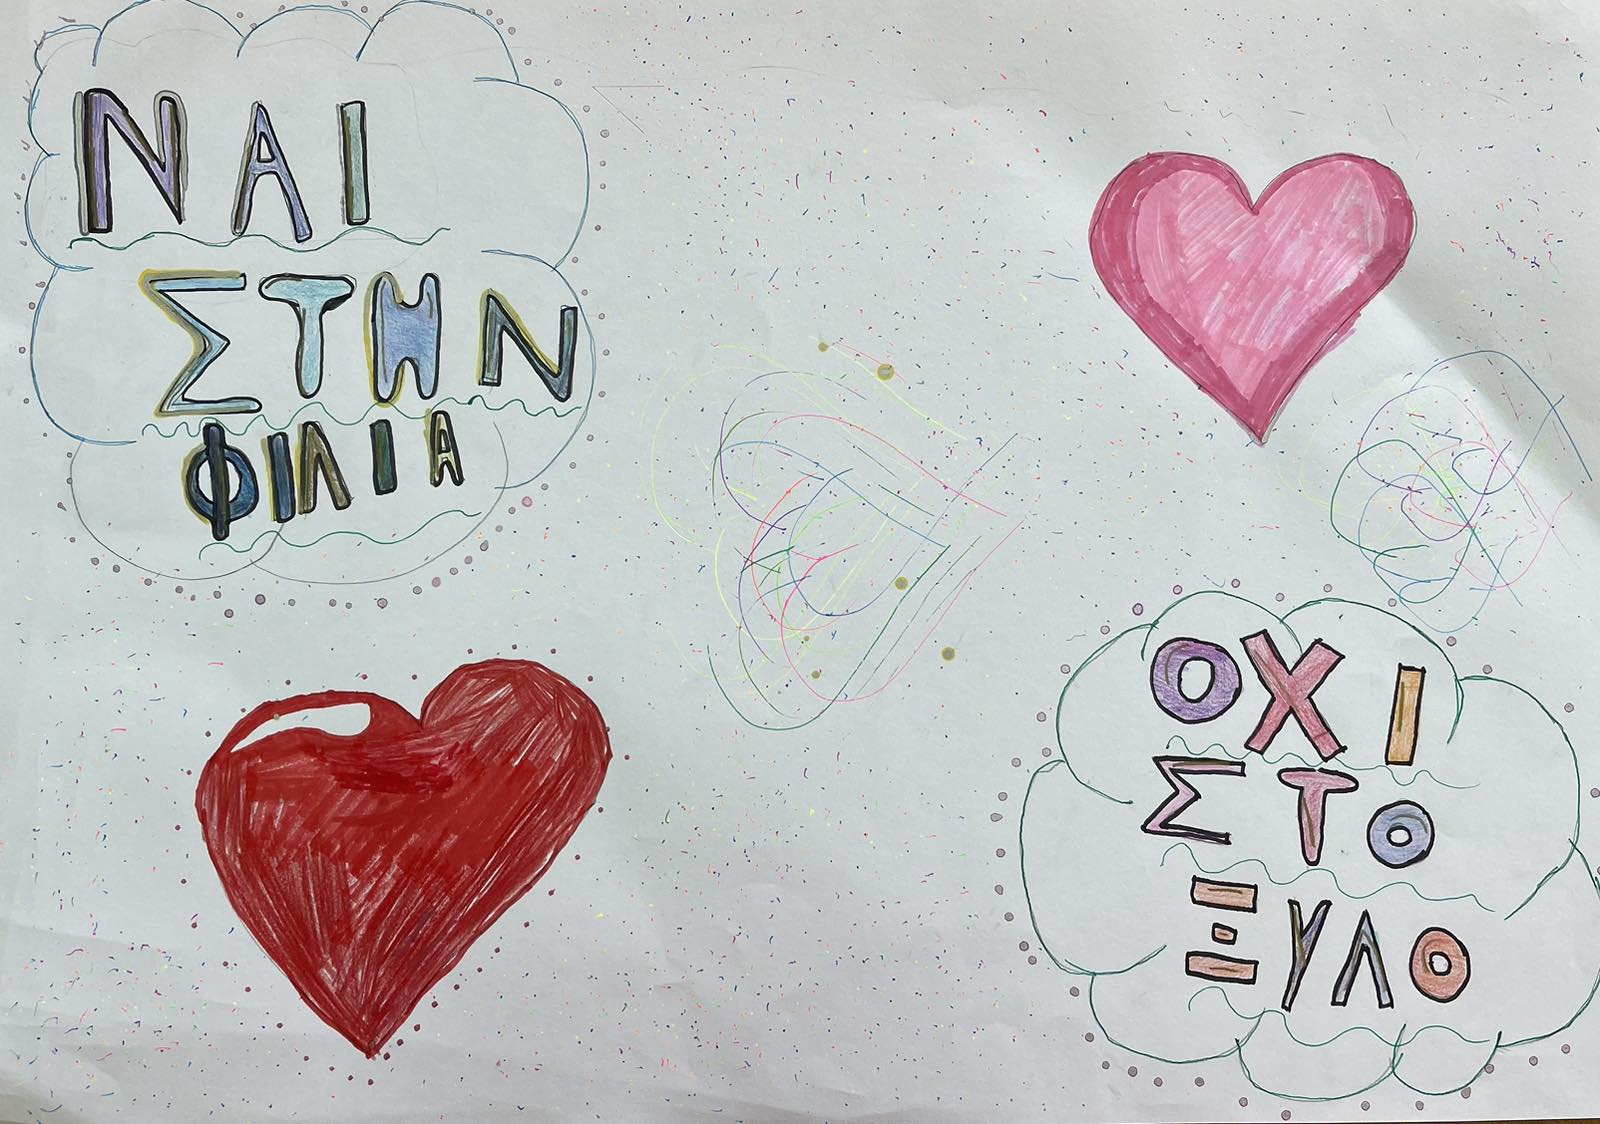 ΝΑΙ
ΣΤΗΝ
ΦΙΛΙΑ
ΟΧΙ
ΣΤΟ
ΞΥΛΟ